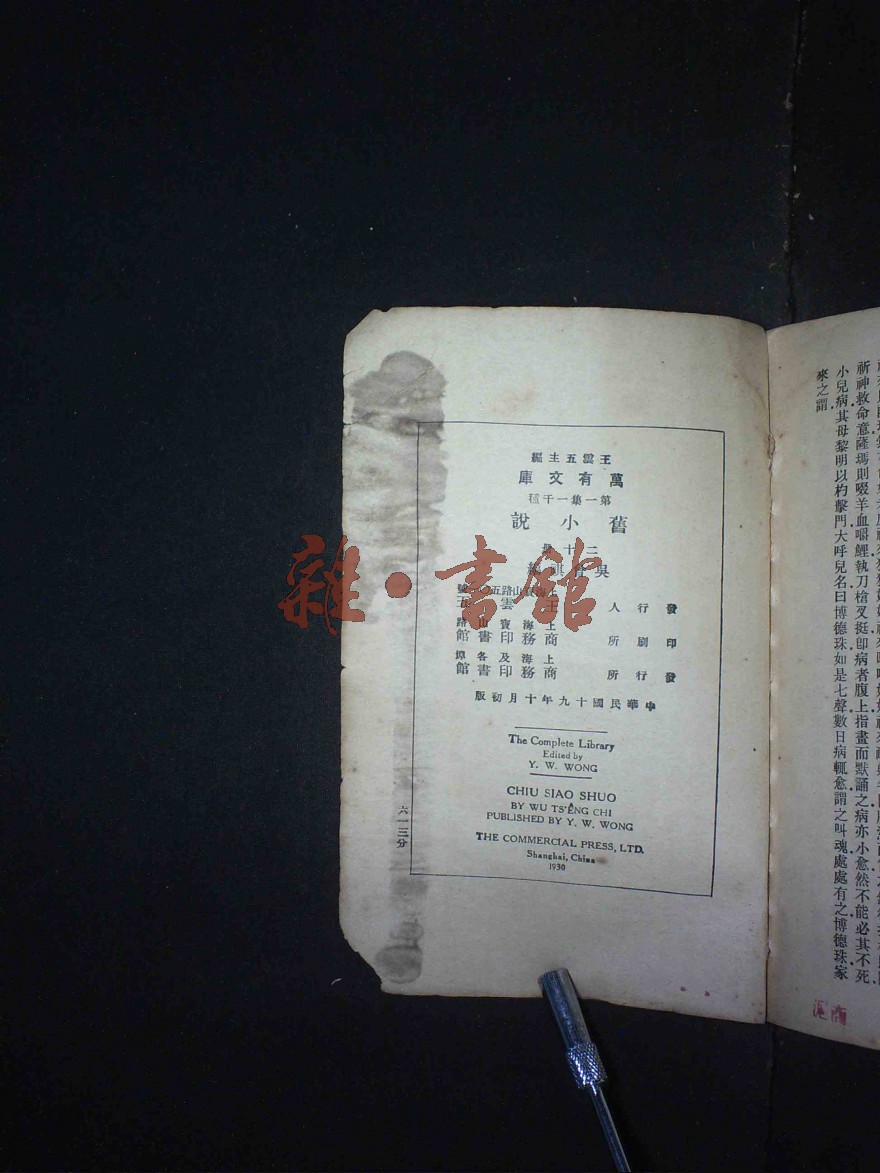 祈神救命意薩瑪則啜羊血嚼鯉執刀槍叉挺卽病者腹上指畫而默誦之病亦小愈然不能必其不死
小兒病其母黎明以杓擊門大呼兒名曰博德珠如是七聲數日病輒愈謂之叫魂處處有之博德珠家
來之謂
王雲五主編
萬有文庫
第一集一千種
舊小說
二十
吳
發行人 王雲五
印刷所 上海寶山路 商務印書館
發行所 上海及各埠 商務印書館
中華民國十九年十月初版
The Complete Library
Edited by
Y. W. WONG
CHIU SIAO SHUO
BY WU TS'ENG CHI
PUBLISHED BY Y. W. WONG
THE COMMERCIAL PRESS, LTD.
Shanghai, China
1930
六一三分
雜·書館